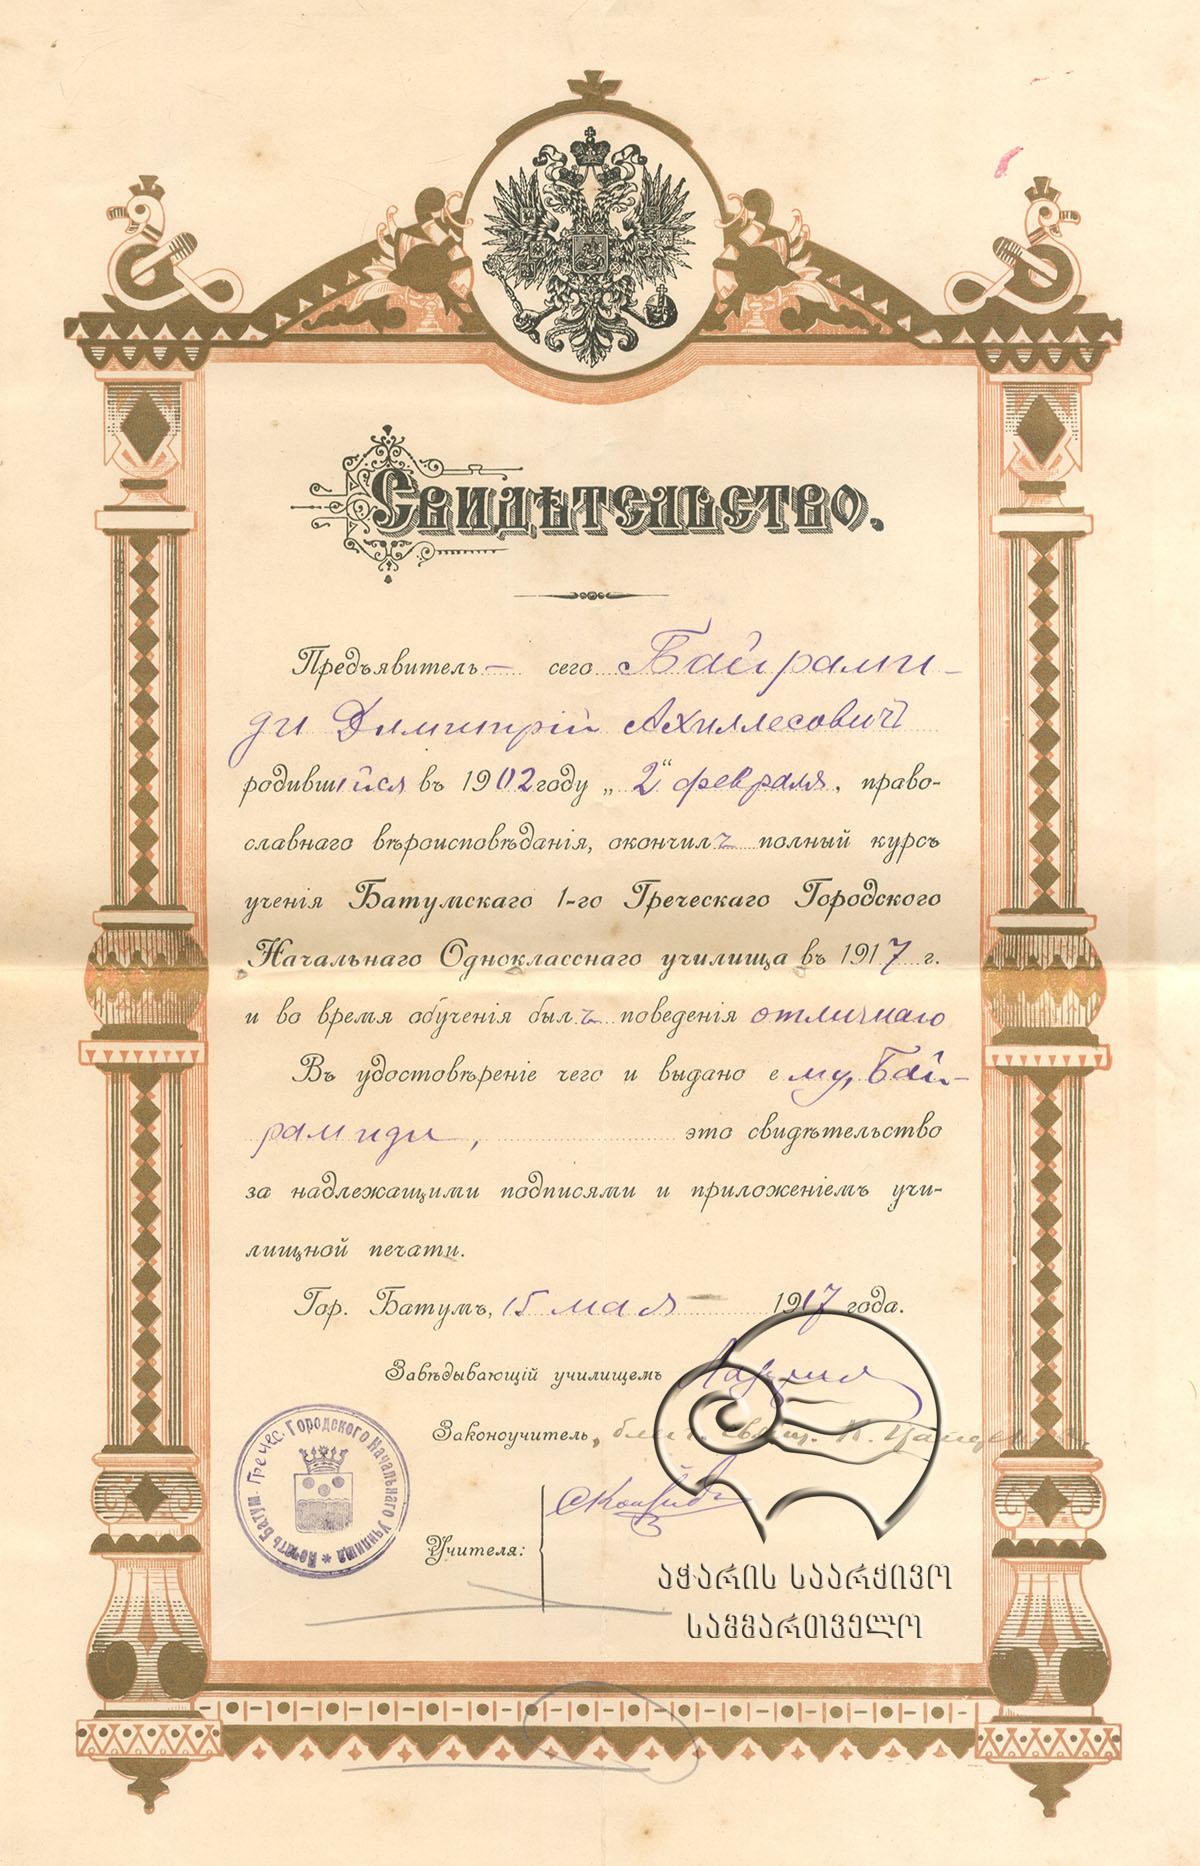 Свидѣтельство.
Предъявитель – сего Байрами-
ди Димитрій Ахиллесовичъ
родившійся въ 1902 году „2“ февраля, право-
славнаго вѣроисповѣданія, окончилъ полный курсъ
ученія Батумскаго 1-го Греческаго Городского
Начальнаго Одноклассного училища въ 1917 г.
и во время обученія былъ поведенія отличнаго
Въ удостовѣреніе чего и выдано ему, Бай-
рамиди, это свидѣтельство
за надлежащими подписями и приложеніемъ учи-
лищной печати.
Гор. Батумъ, 15 мая 1917 года.
Завѣдывающій училищемъ
Законоучитель, благ. свящ. К.
Учителя:
Печать Батум. Гречес. Городского Начальнаго Училища *
აჭარის საარქივო
სამმართველო